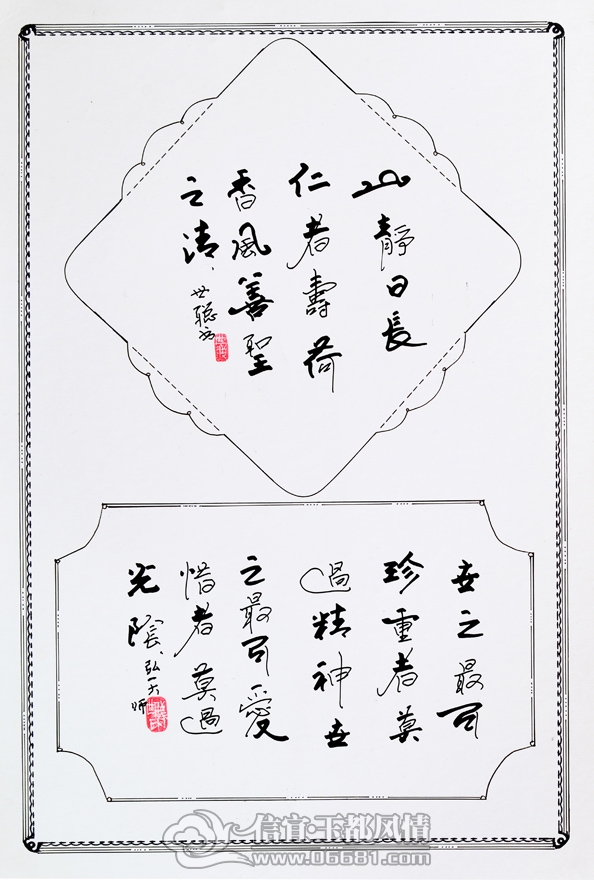 山靜日長
仁者壽荷
香風善聖
之清
世聪书
世之最可
珍重者莫
過精神世
之最可愛
惜者莫過
光陰
弘一大师
信宜·玉都风情
www.06681.com